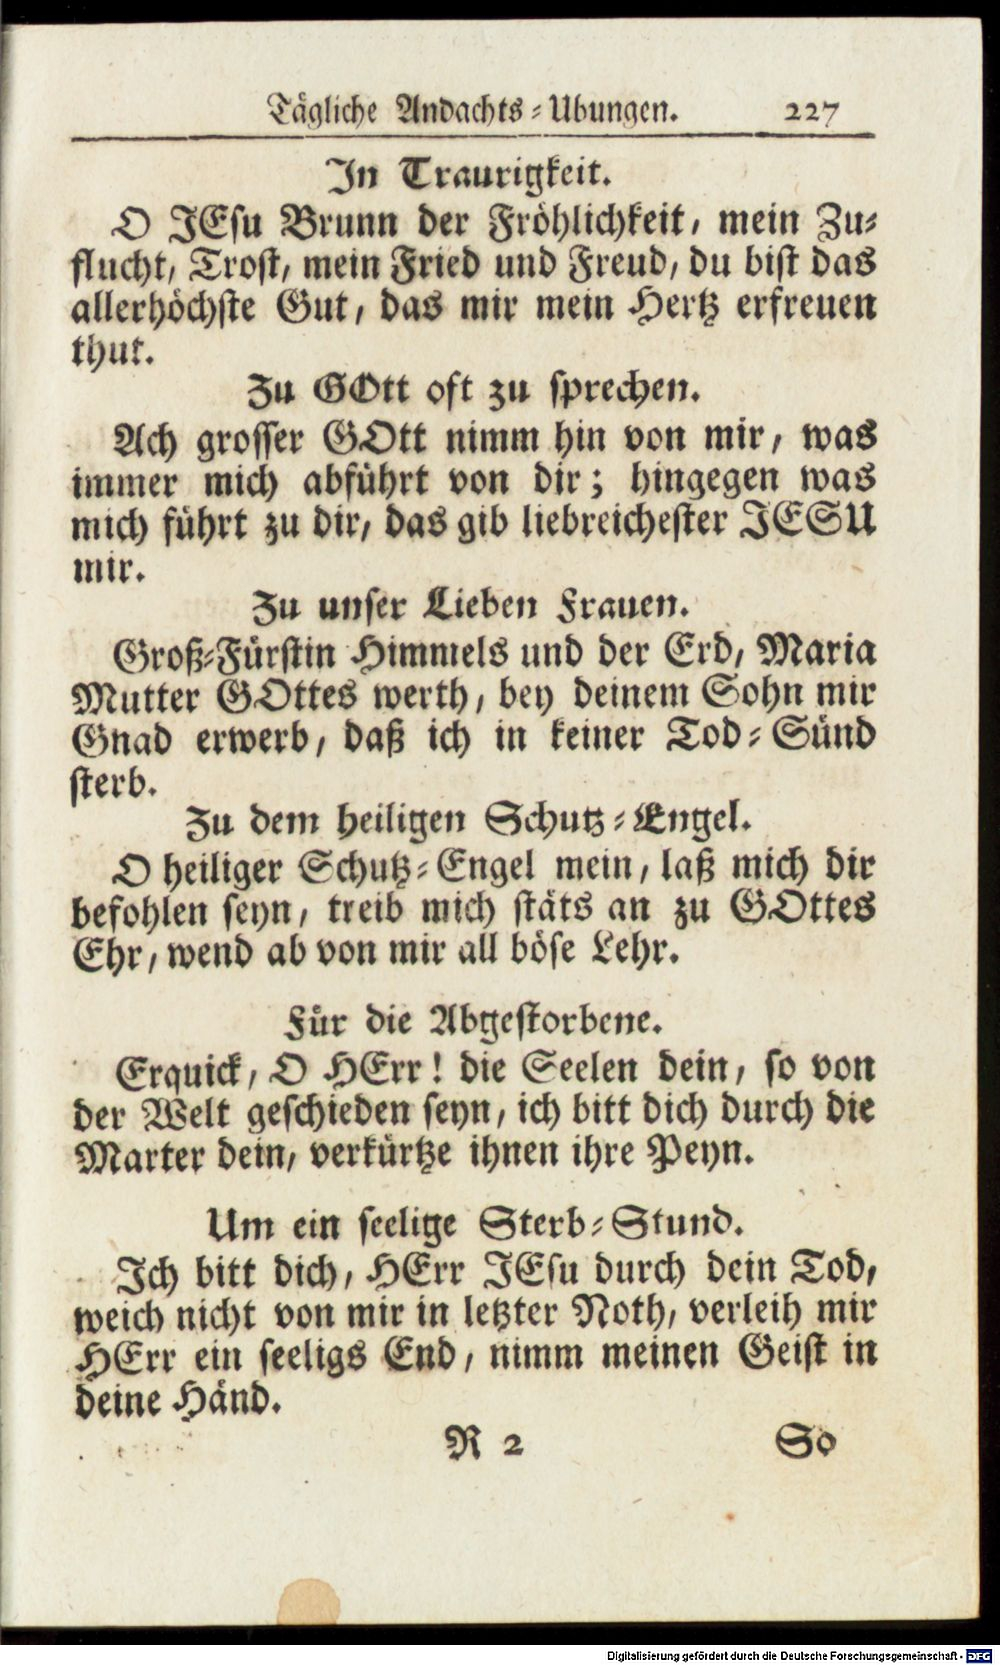 Tägliche Andachts-Ubungen. 227
In Traurigkeit.
O JEsu Brunn der Fröhlichkeit, mein Zu-
flucht, Trost, mein Fried und Freud, du bist das
allerhöchste Gut, das mir mein Hertz erfreuen
thut.
Zu GOtt oft zu sprechen.
Ach grosser GOtt nimm hin von mir, was
immer mich abführt von dir; hingegen was
mich führt zu dir, das gib liebreichester JESU
mir.
Zu unser Lieben Frauen.
Groß-Fürstin Himmels und der Erd, Maria
Mutter GOttes werth, bey deinem Sohn mir
Gnad erwerb, daß ich in keiner Tod-Sünd
sterb.
Zu dem heiligen Schutz-Engel.
O heiliger Schutz-Engel mein, laß mich dir
befohlen seyn, treib mich stäts an zu GOttes
Ehr, wend ab von mir all böse Lehr.
Für die Abgestorbene.
Erquick, O HErr! die Seelen dein, so von
der Welt geschieden seyn, ich bitt dich durch die
Marter dein, verkürtze ihnen ihre Peyn.
Um ein seelige Sterb-Stund.
Ich bitt dich, HErr JEsu durch dein Tod,
weich nicht von mir in letzter Noth, verleih mir
HErr ein seeligs End, nimm meinen Geist in
deine Händ.
R 2 So
Digitalisierung gefördert durch die Deutsche Forschungsgemeinschaft - DFG